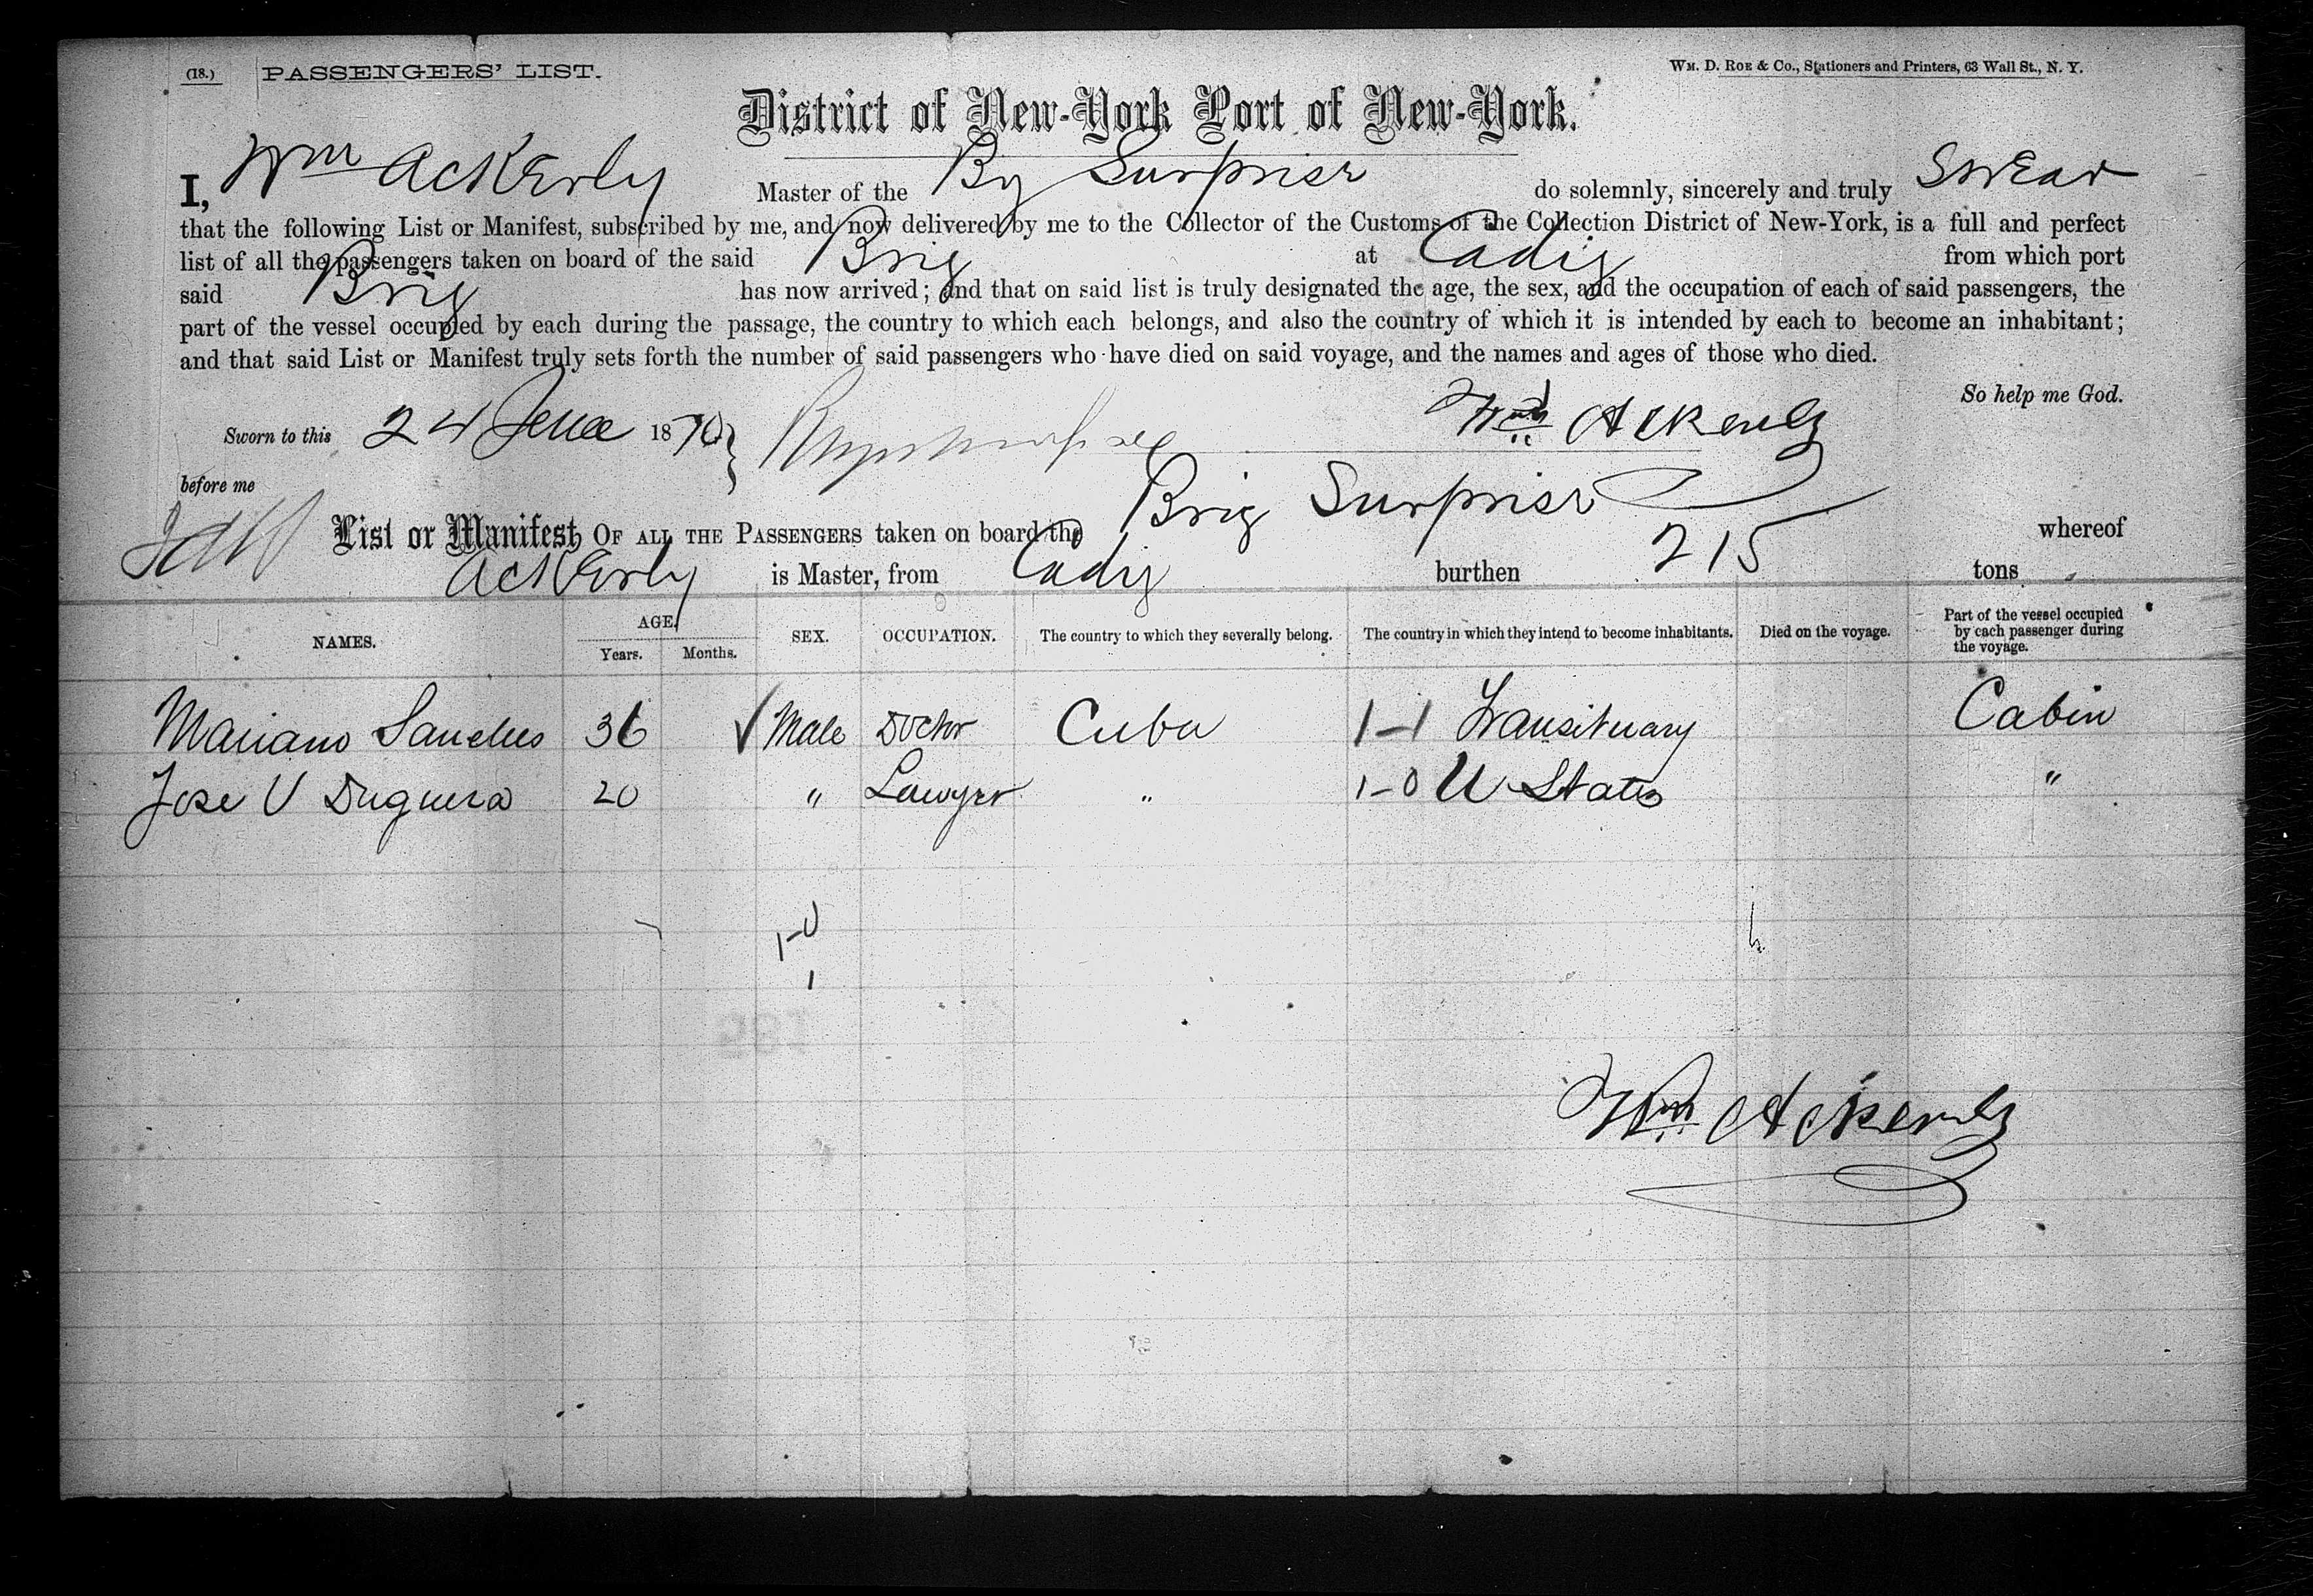 (18.) PASSENGERS' LIST. WM. D. ROE & CO., Stationers and Printers, 63 Wall St., N. Y.
District of New-York Port of New-York.
I, Wm Ackerly Master of the Bg Surprise do solemnly, sincerely and truly Swear
that the following List or Manifest, subscribed by me, and now delivered by me to the Collector of the Customs of the Collection District of New-York, is a full and perfect
list of all the passengers taken on board of the said Brig at Cadiz from which port
said Brig has now arrived; and that on said list is truly designated the age, the sex, and the occupation of each of said passengers, the
part of the vessel occupied by each during the passage, the country to which each belongs, and also the country of which it is intended by each to become an inhabitant;
and that said List or Manifest truly sets forth the number of said passengers who have died on said voyage, and the names and ages of those who died.
So help me God.
Sworn to this 24 June 1870 Wm Ackerly
before me
List or Manifest OF ALL THE PASSENGERS taken on board the Brig Surprise whereof
Ackerly is Master, from Cadiz burthen 215 tons
NAMES. AGE. Years. Months. SEX. OCCUPATION. The country to which they severally belong. The country in which they intend to become inhabitants. Died on the voyage. Part of the vessel occupied by each passenger during the voyage.
Mariano Sanches 36 Male Doctor Cuba 1-1 Transituary Cabin
Jose V Duguera 20 " Lawyer " 1-0 U States "
1-0
1
Wm Ackerly